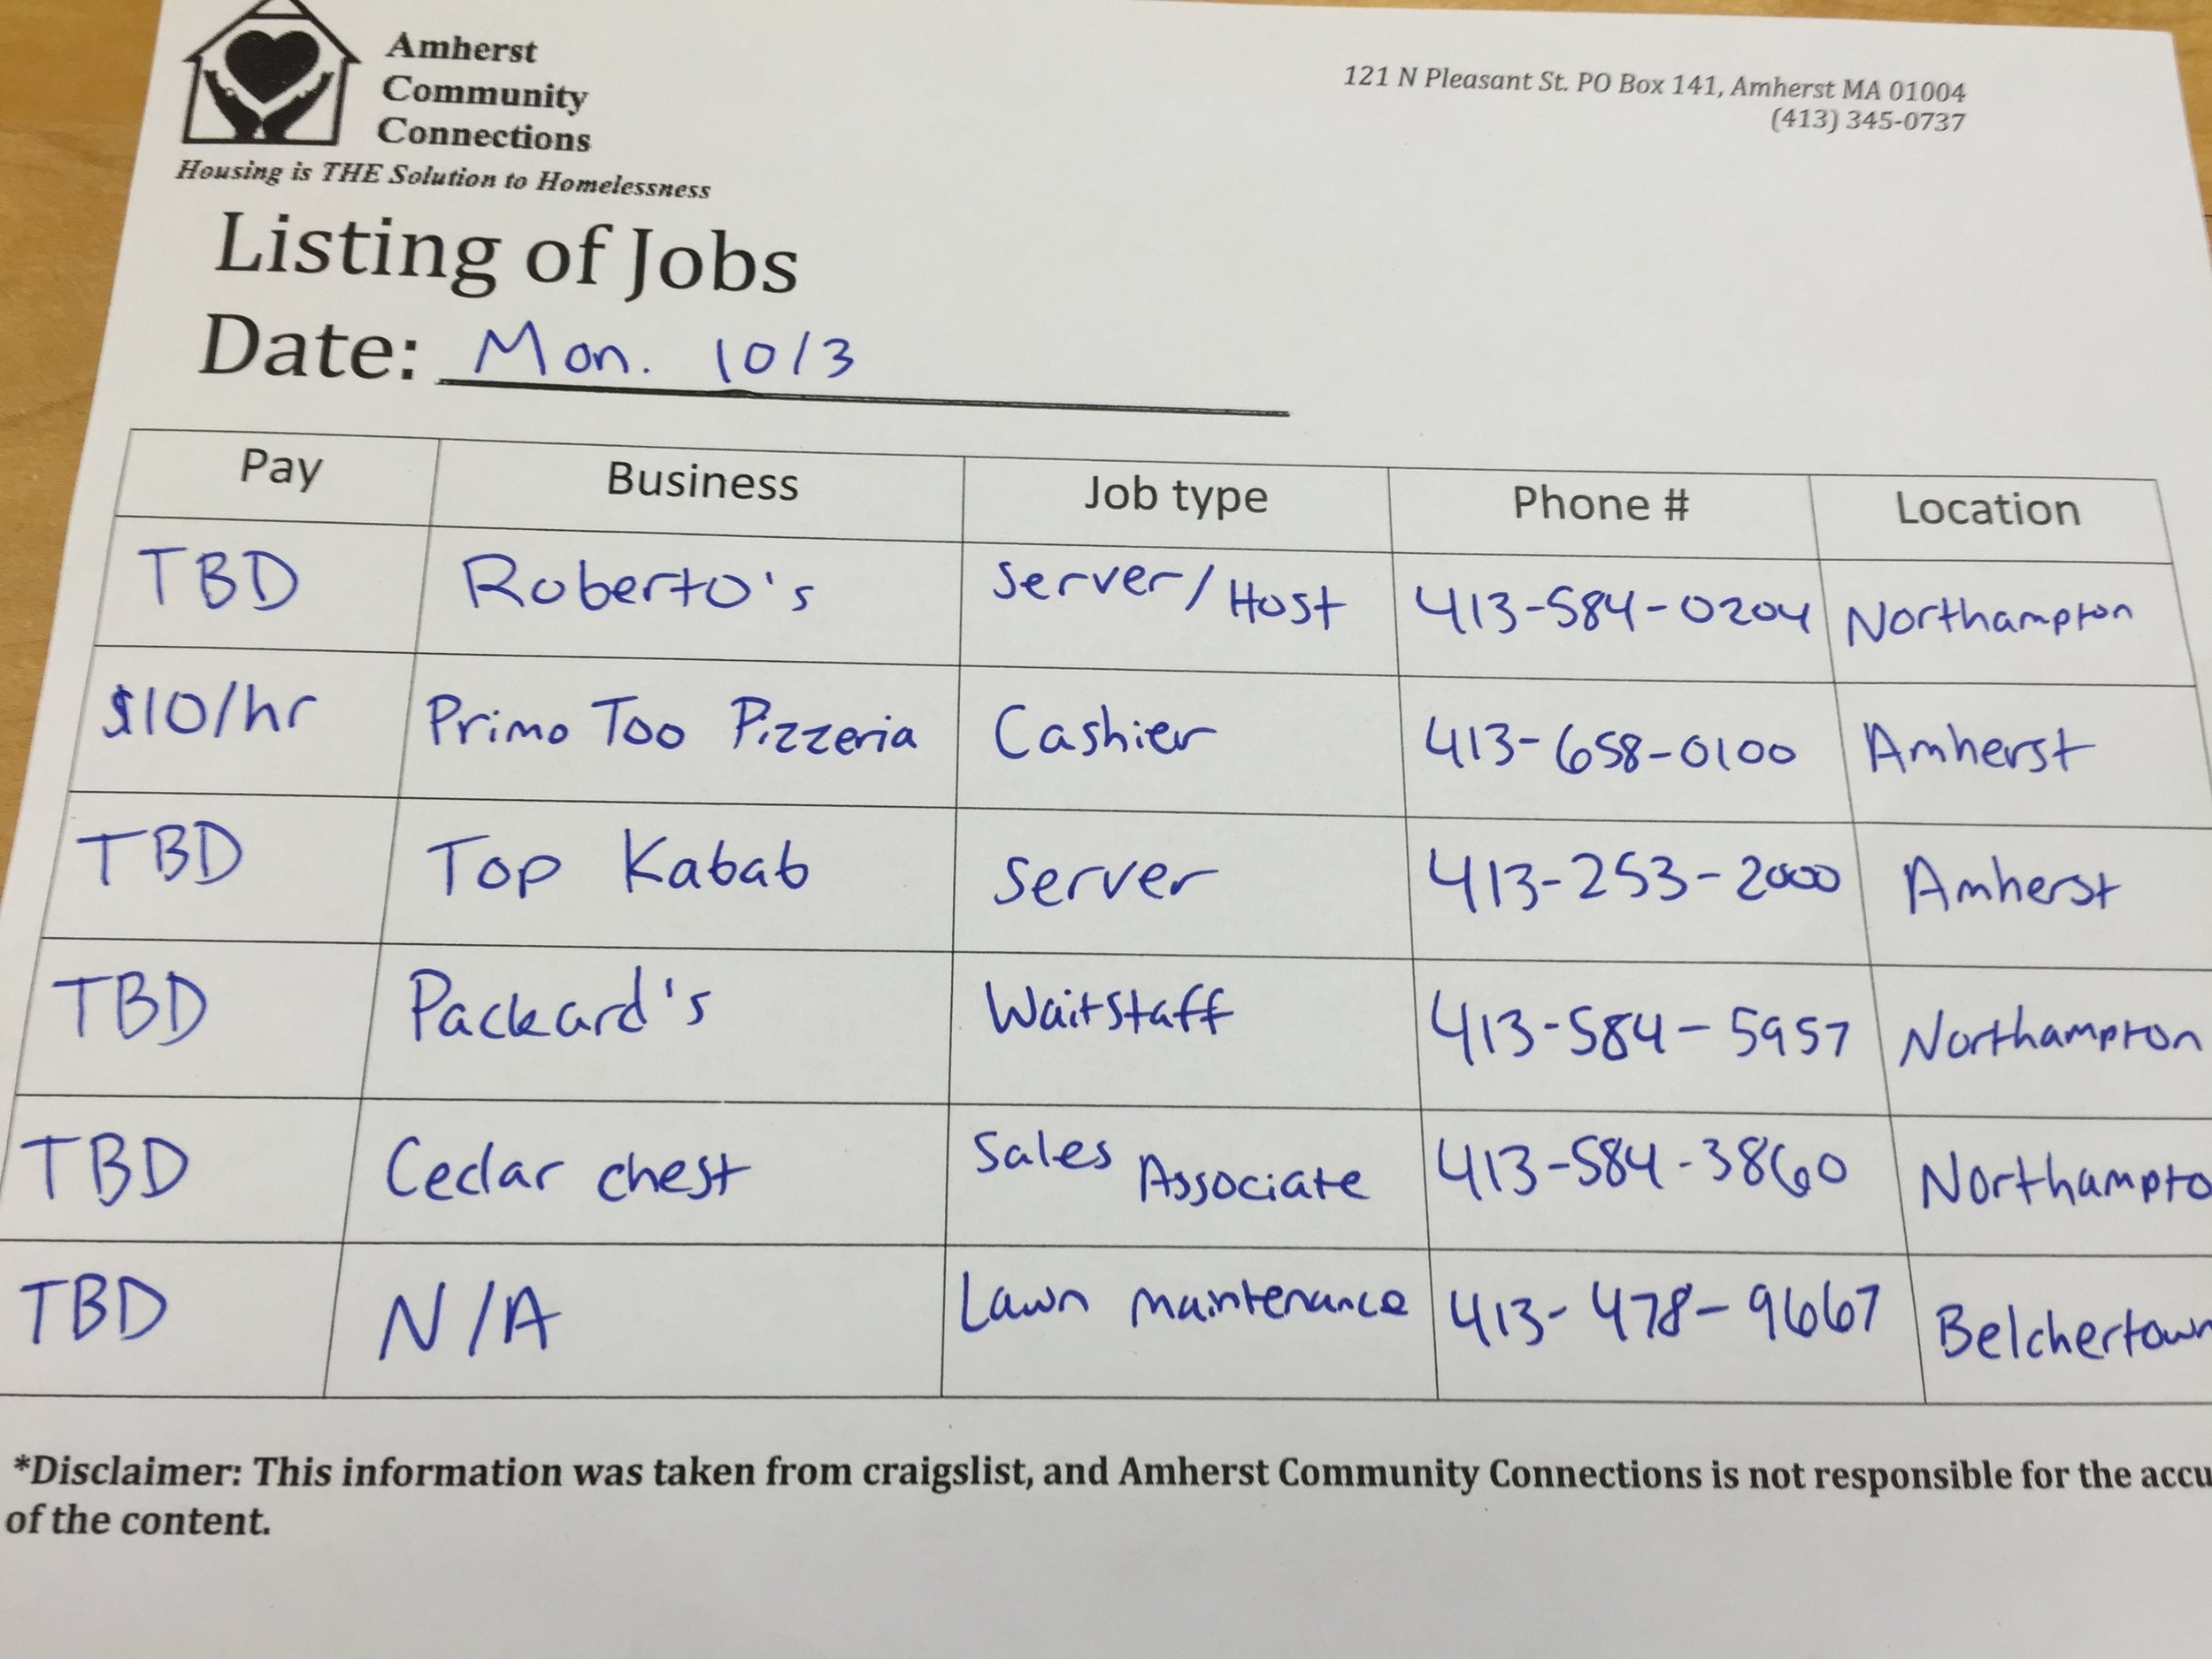 Amherst
Community
Connections
Housing is THE Solution to Homelessness
121 N Pleasant St. PO Box 141, Amherst MA 01004
(413) 345-0737
Listing of Jobs
Date: Mon. 10/3
Pay Business Job type Phone # Location
TBD Roberto's Server/Host 413-584-0204 Northampton
$10/hr Primo Too Pizzeria Cashier 413-658-0100 Amherst
TBD Top Kabab Server 413-253-2000 Amherst
TBD Packard's Waitstaff 413-584-5957 Northampton
TBD Cedar chest Sales Associate 413-584-3860 Northampto
TBD N/A Lawn maintenance 413-478-9667 Belchertown
*Disclaimer: This information was taken from craigslist, and Amherst Community Connections is not responsible for the accu
of the content.